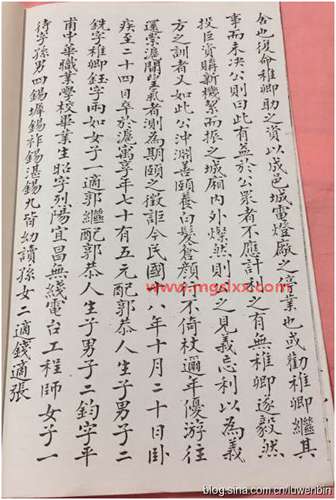 舍也復命稚卿助之資以成邑城電燈廠之停業也或勸稚卿繼其
事而未決公則曰此有益於公眾者不應計利之有無稚卿遂毅然
投巨資購新機絜而振之城廂內外燦然則公之見義忘利以為義
方之訓者又如此公沖淵善頤養白髮蒼顏行不倚杖邇年優游往
還棠滬間皇氣者測為期頤之徵詎今民國十八年十月二十日卧
疾至二十四日卒於滬寓享年七十有五元配郭恭人生子男子二
銑字稚卿鈺字雨如女子一適郭繼配郭恭人生子男子二鈞字平
甫中華職業學校畢業生昭字烈陽宜昌無綫電台工程師女子一
待字孫男四錫墀錫祚錫湛錫九皆幼讀孫女二適錢適張
www.mgdxx.com
blog.sina.com.cn/luwenbin